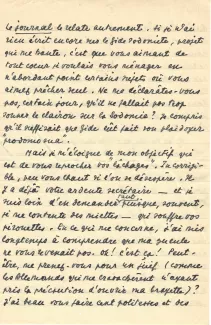 le journal le relate autrement. Si je n'ai
rien écrit encore sur le Gide sodomiste, projet
qui me hante, c'est que vous aimant de
tout coeur je voulais vous ménager en
n'abordant point certains sujets où vous
aimez prêcher seul. Ne me déclarâtes-vous
pas, certain jour, qu'il ne fallait pas trop
sonner le clairon sur la sodomie ? Je compris
qu'il
Gide eût fait son plaidoyer
pro domo sua.
Mais je m'éloigne de mon objectif qui
est de vous reprocher vos lâchages.
ble, peu vous chaut si l'on se désespère. Il
y a déjà votre ardente secrétaire — et je
suis loin d'en demander tant, puisque, souvent,
je me contente des miettes — qui souffre vos
pirouettes. En ce qui me concerne, j'ai mis
longtemps à comprendre que ma gueule
ne vous revenait pas. Ok ! c'est ça ! Peut-
être, me prenez-vous pour un juif (comme
les Allemands qui me
ayant
pris la précaution d'ouvrir ma braguette) ?
J'ai beau vous faire cent politesses et des